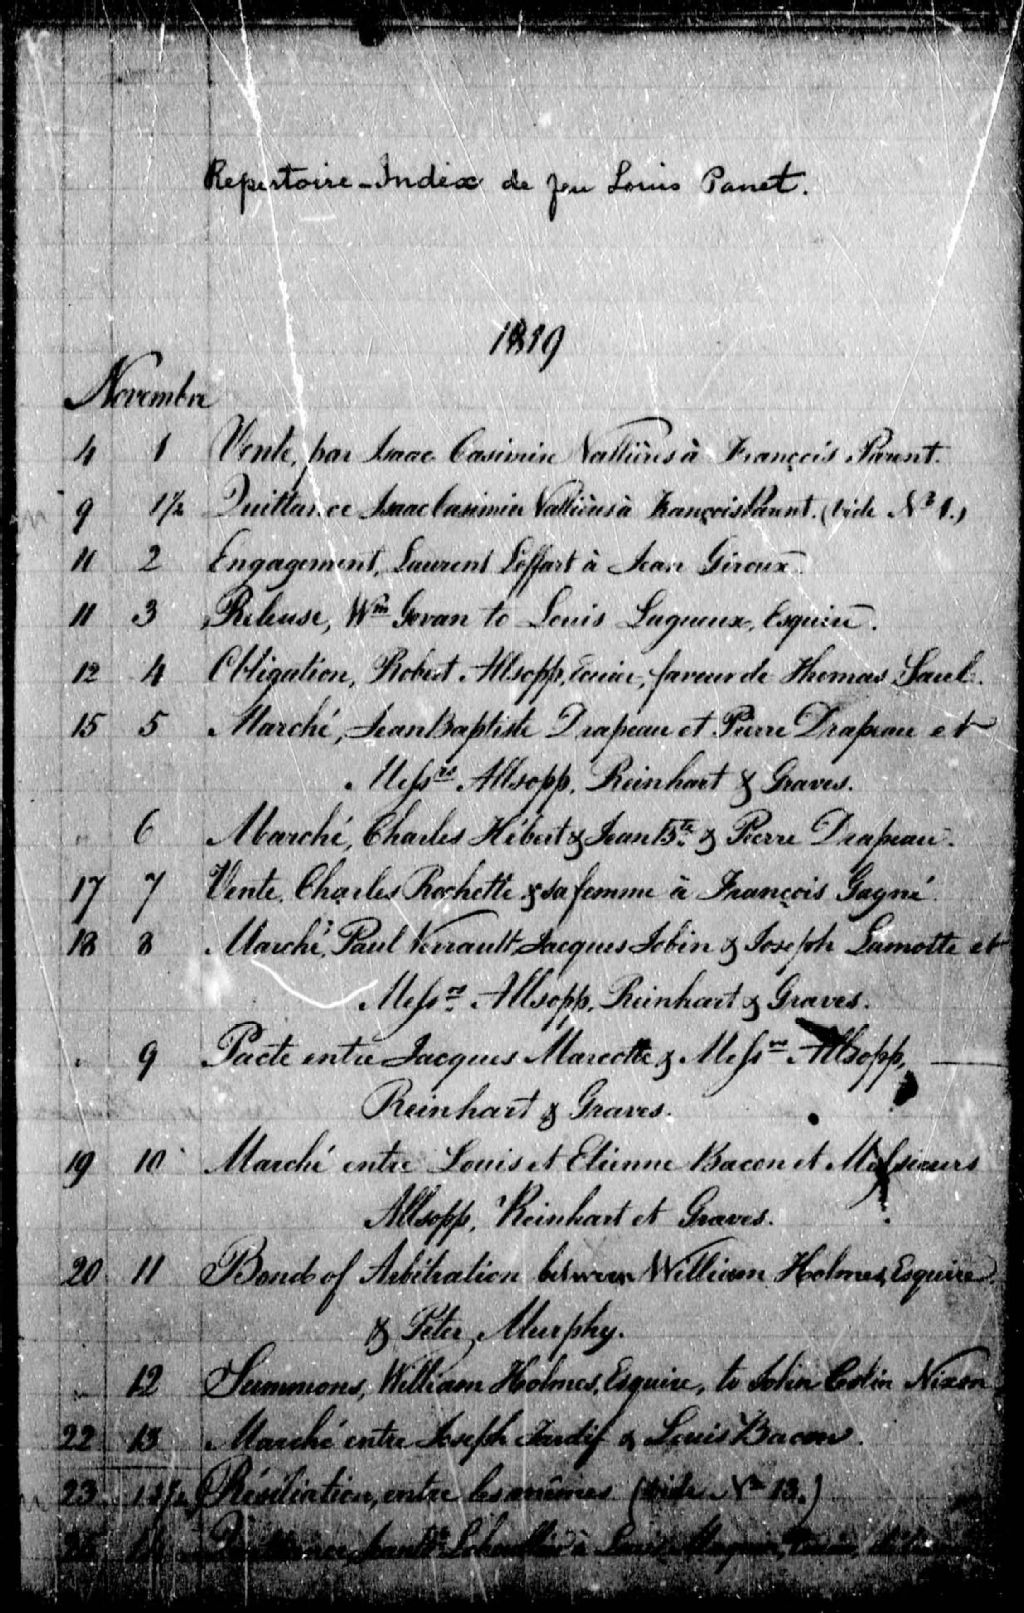 Repertoire-Index de feu Louis Panet.
1819
Novembre
4 1 Vente, par Isaac Casimir Vallières à François Parent.
9 1½ Quittance Isaac Casimir Vallières à François Parent. (vide No 1.)
11 2 Engagement, Laurent Loffart à Jean Giroux
11 3 Release, Wm Govan to Louis Lagueux, Esquire.
12 4 Obligation, Robert Allsopp, Ecuier, faveur de Thomas Saul.
15 5 Marché, Jean Baptiste Drapeau et Pierre Drapeau et
Messrs Allsopp, Reinhart & Graves.
" 6 Marché, Charles Hébert & Jean Bte & Pierre Drapeau.
17 7 Vente, Charles Rochette & sa femme à François Gagné
18 8 Marché, Paul Verrault Jacques Jobin & Joseph Lamotte et
Messrs Allsopp, Reinhart & Graves.
" 9 Pacte entre Jacques Marcotte & Messrs Allsopp,
Reinhart & Graves.
19 10 Marché entre Louis et Etienne Bacon et Messieurs
Allsopp, Reinhart et Graves.
20 11 Bond of Arbitration between William Holmes, Esquire
& Peter Murphy.
" 12 Summons, William Holmes, Esquire, to John Colin Nixon
22 13 Marché entre Joseph Tardif & Louis Bacon.
23 13½ Résiliation, entre les mêmes (vide No 13.)